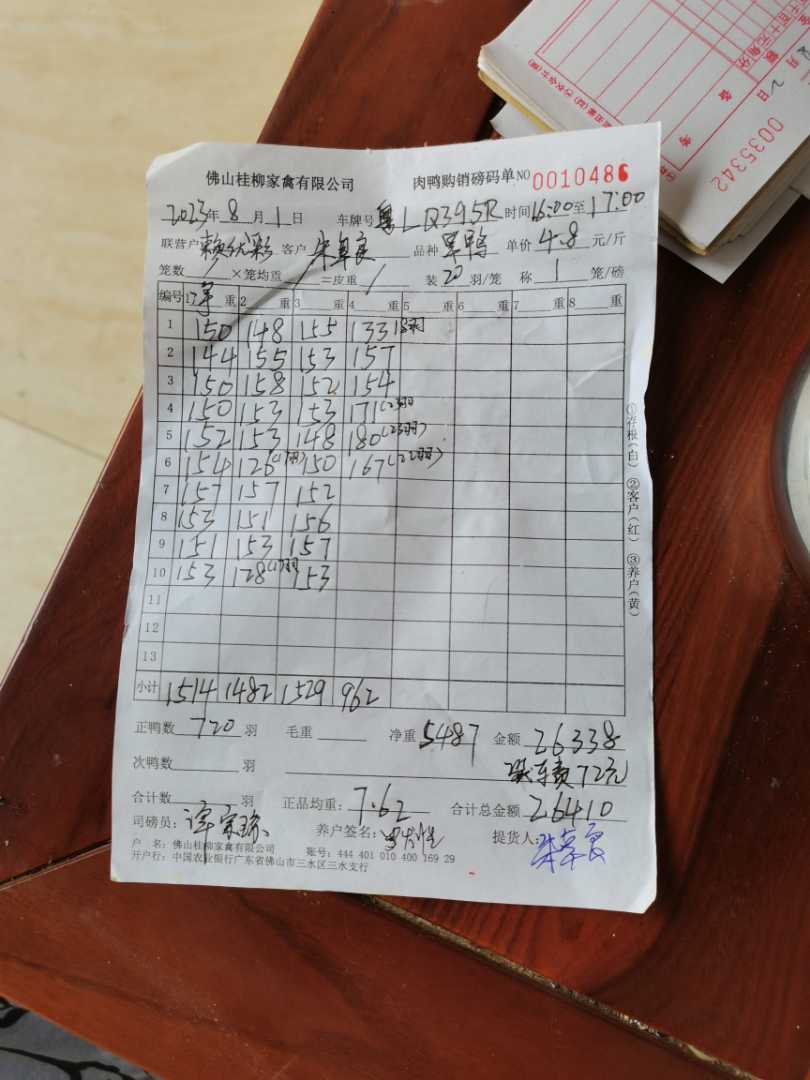 佛山桂柳家禽有限公司 肉鸭购销磅码单NO 0010486
2023年 8 月 1 日 车牌号 粤LQ395R 时间16:00至17:00
联营户 客户 朱草良 品种 单价 4.8 元/斤
笼数 / ×笼均重 =皮重 / 装 20 羽/笼 称 1 笼/磅
编号 1净重 2 重 3 重 4 重 5 重 6 重 7 重 8 重
1 150 148 155 133(18羽)
2 144 155 153 157
3 150 158 152 154
4 150 153 153 171(23羽)
5 152 153 148 180(23羽)
6 154 126(17羽) 150 167(22羽)
7 157 157 152
8 153 151 156
9 151 153 157
10 153 128(17羽) 153
11
12
13
小计 1514 1482 1529 962
正鸭数 720 羽 毛重 净重 5487 金额 26338
次鸭数 羽 车费72元
合计数 羽 正品均重: 7.62 合计总金额 26410
司磅员: 养户签名: 提货人: 朱草良
户 名: 佛山桂柳家禽有限公司 账号: 444 401 010 400 169 29
开户行: 中国农业银行广东省佛山市三水区三水支行
①存根(白) ②客户(红) ③养户(黄)
0035342
备考